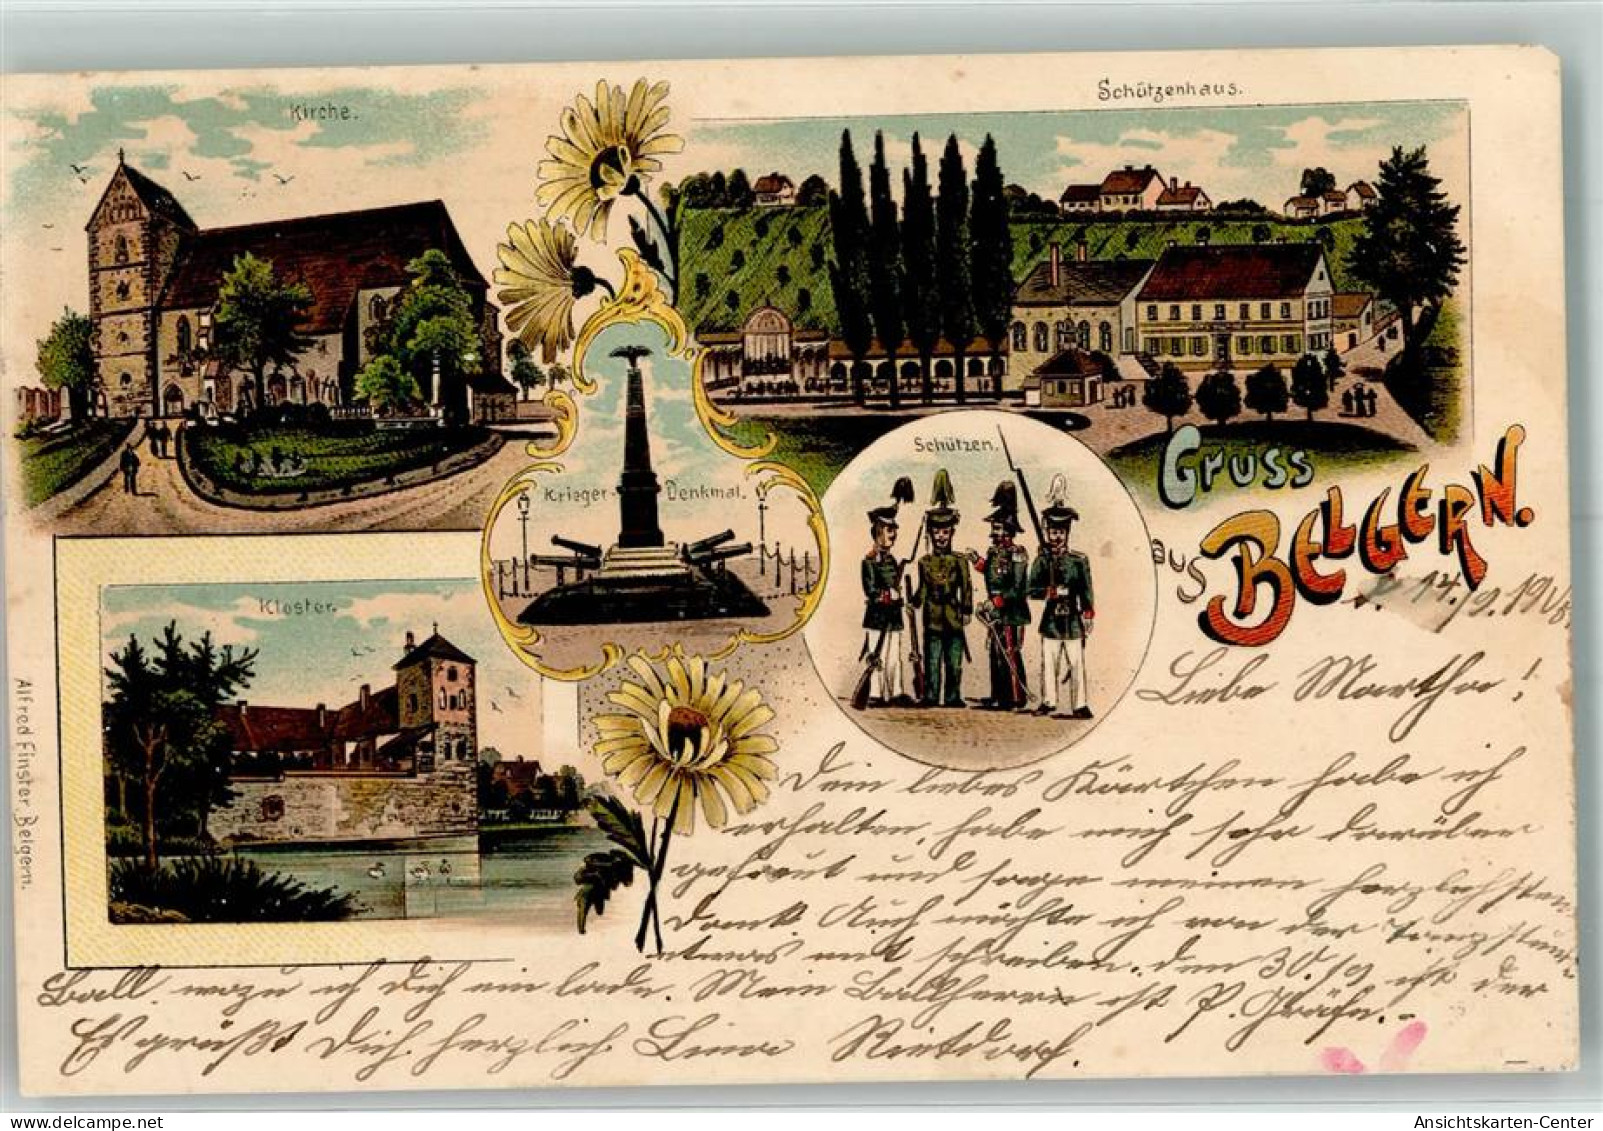 Kirche.
Schützenhaus.
Krieger-Denkmal.
Schützen.
Gruss
aus BELGERN.
Kloster.
Alfred Finster Belgern.
14./9.
Liebe Martha!
Dein liebes Kärtchen habe ich
erhalten, habe mich sehr darüber
gefreut und sage meinen herzlichsten
Dank. Auch möchte ich von der Tanzstunde
etwas mit schreiben. den 30./9 ist der
Ball, wozu ich Dich ein lade. Mein Ballherrn ist P. Gräfe.-
Es grüßt Dich herzlich Lina Rietdorf.
Ansichtskarten-Center